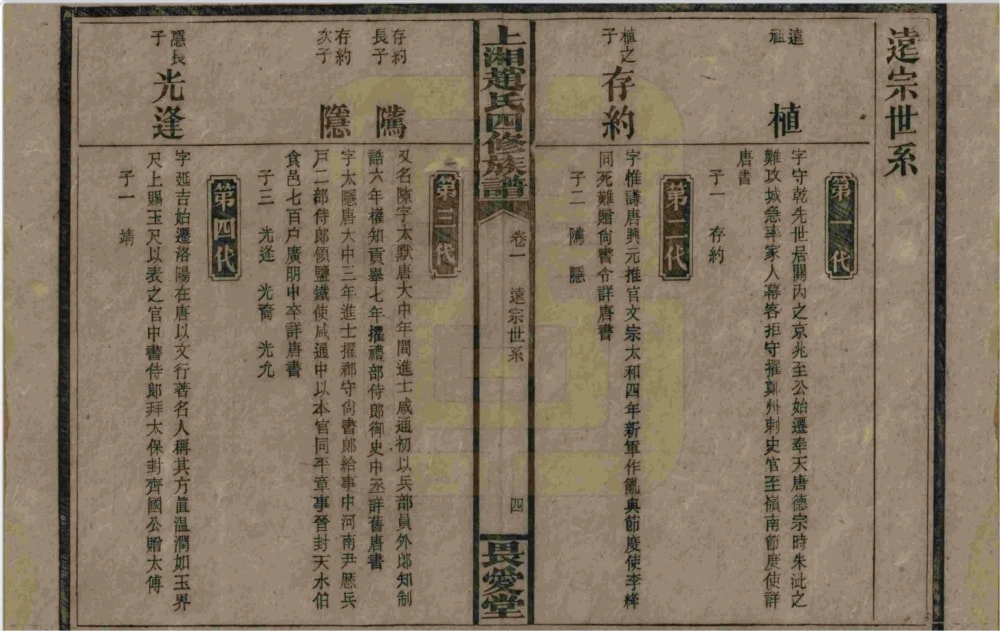 遠宗世系
第一代
遠祖
植
字守乾先世居關內之京兆至公始遷奉天唐德宗時朱泚之
難攻城急率家人幕客拒守擢鄭州刺史官至嶺南節度使詳
唐書
子一 存約
第二代
植之子
存約
字惟謙唐興元推官文宗太和四年新軍作亂與節度使李絳
同死難贈尙書令詳唐書
子二 隲 隱
上湘趙氏四修族譜
卷一 遠宗世系
四
畏愛堂
第三代
存約長子
隲
又名隙字太默唐大中年間進士咸通初以兵部員外郎知制
誥六年權知貢舉七年擢禮部侍郎御史中丞詳舊唐書
存約次子
隱
字大隱唐大中三年進士擢郡守尙書郎給事中河南尹歷兵
戸二部侍郎領鹽鐵使咸通中以本官同平章事晉封天水伯
食邑七百户廣明中卒詳唐書
子三 光逢 光裔 光允
第四代
隱長子
光逢
字延吉始遷洛陽在唐以文行著名人稱其方直溫潤如玉界
尺上賜玉尺以表之官中書侍郎拜太保封齊國公贈太傅
子一 靖